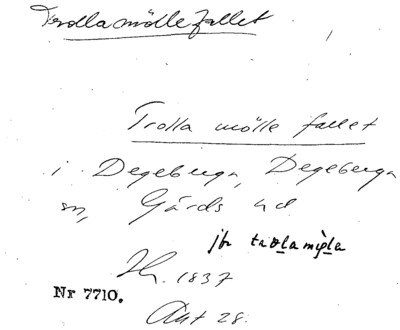 Trollamöllefallet
Trolla mölle fallet
i Degeberga, Degeberga
sn, Gärds hd
jfr
1837
Nr 7710.
Akt 28.